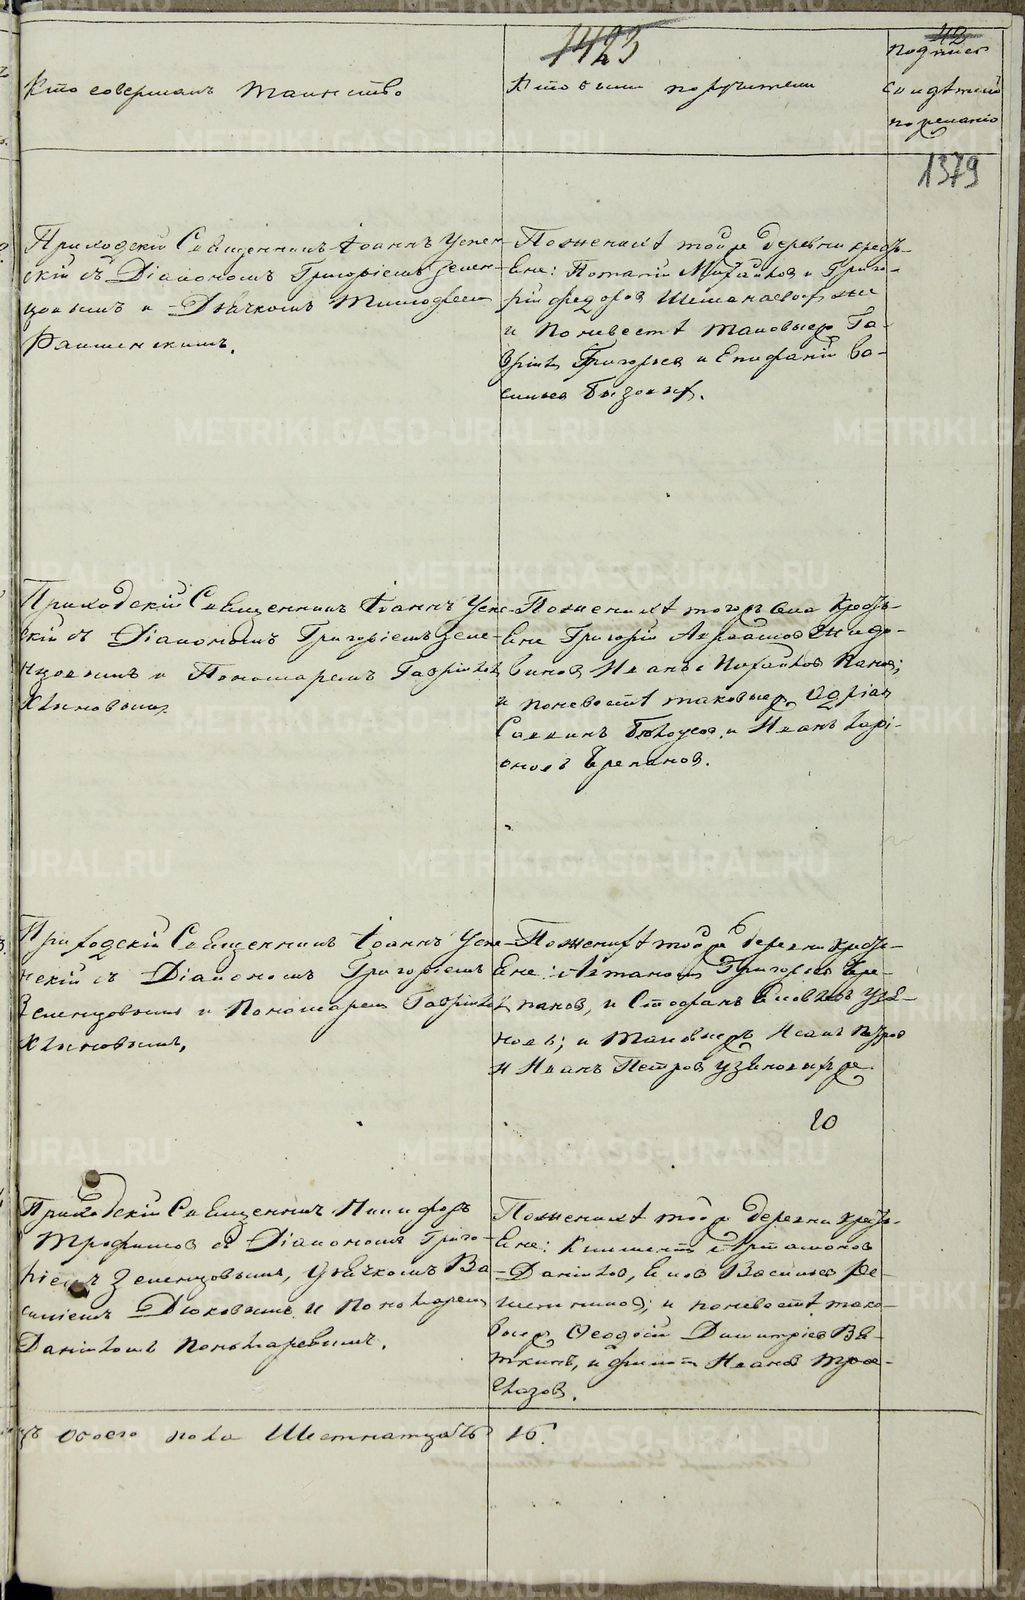 1423
42
Кто совершалъ таинство
Кто были поручители
подпись
свидѣтелей
по желанію
1379
Приходскій Священникъ Іоаннъ Успен-
скій съ Діакономъ Григоріемъ Зелен-
цовымъ и Дьячкомъ Тимофеем
По женихѣ той же деревни кресть-
яне: Потапій Михайловъ и Григо-
рій Федоровъ
и по невестѣ таковые же Га-
вріилъ Григорьевъ и Епифаній Ва-
сильев
Приходскій Священникъ Іоаннъ Успе-
скій съ Діакономъ Григоріемъ Зеле-
нцовымъ и Пономаремъ Гавріилом
Хлыновымъ
По женихѣ того же села Кресть-
яне Григорій
Иванъ Михайловъ Панов;
и по невестѣ таковые же Адріан
Саввинъ и Иванъ Ларі-
оновъ Черепановъ.
Приходскій Священникъ Іоаннъ Успе-
нскій съ Діакономъ Григоріемъ
Зеленцовымъ и Пономарем Гавріилом
Хлыновымъ,
По женихѣ той же деревни Кресть-
яне: Артамон Григорьев Чере-
панов, и Стефанъ Узя-
новъ; и таковые же Исаак Петров
и Иванъ Петров Узяновы же
20
Приходскій Священник Никифоръ
Трофимов съ Діакономъ Григо-
ріемъ Зеленцовымъ, Дьячкомъ Ва
силіемъ Дюковымъ и Пономарем
Даніиломъ Пономаревымъ.
По женихѣ той же деревни кресть-
яне: Климентъ Артамонов
Данилов, Василье Ре-
шетников; и по невестѣ тако-
вые же Феодосій Димитріев Вя-
ткинъ, и Филип Иванов Трое-
глазов.
ъ обоего пола Шестнатцать 16.